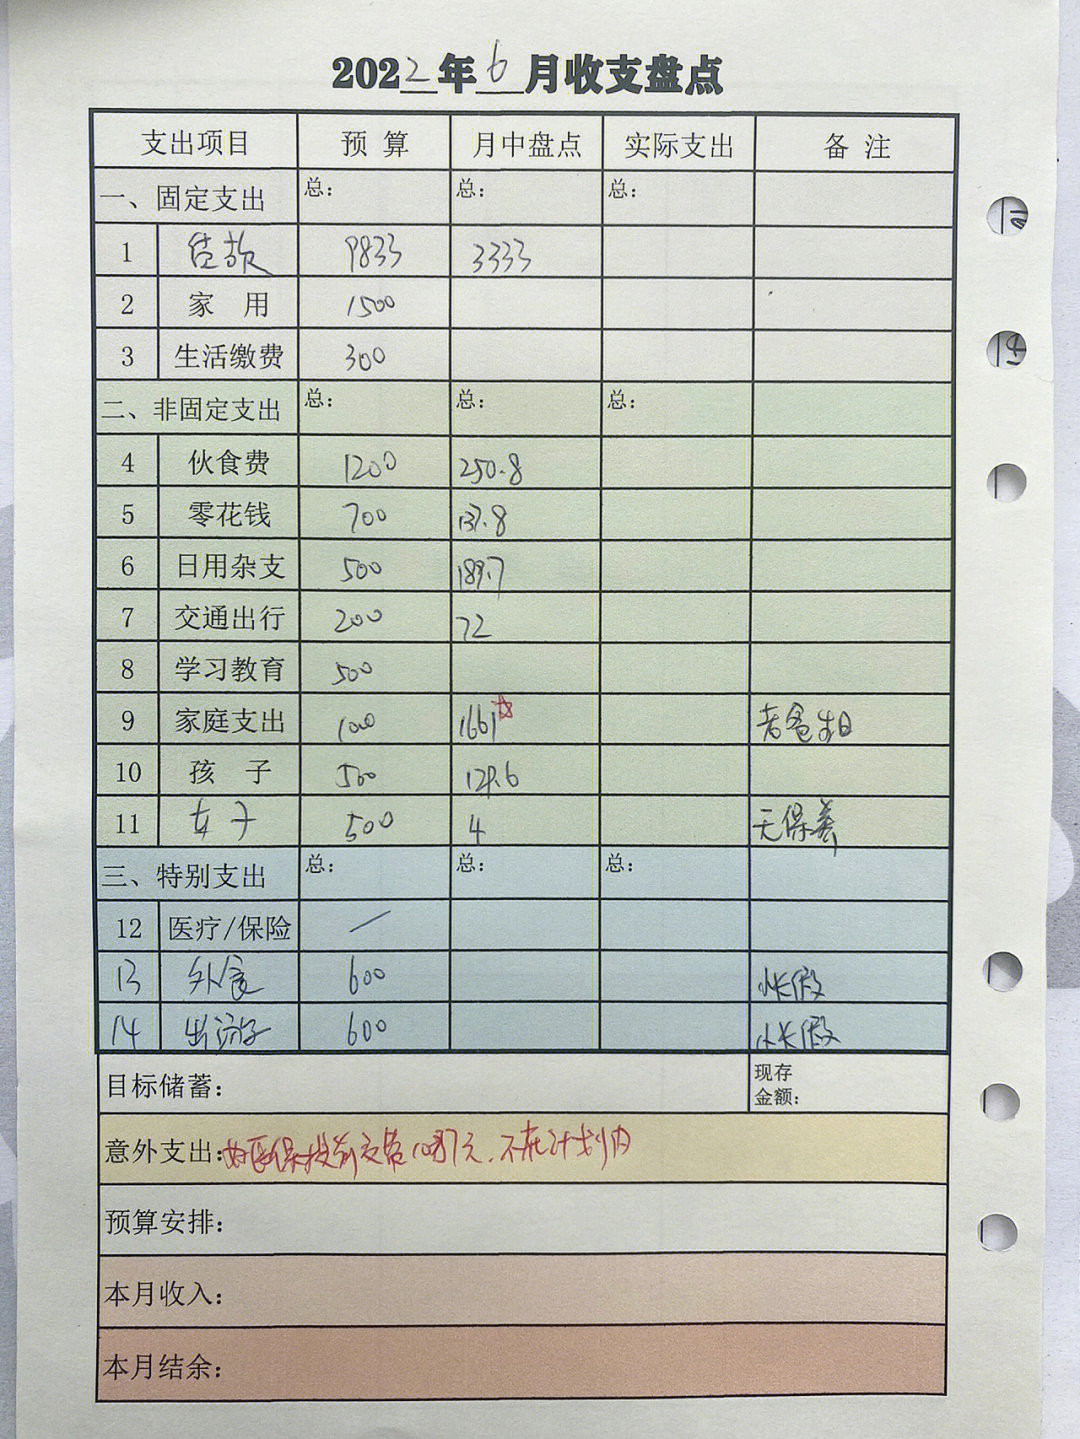 2022年6月收支盘点
支出项目 预算 月中盘点 实际支出 备注
一、固定支出 总: 总: 总:
1 贷款 9833 3333
2 家用 1500
3 生活缴费 300
二、非固定支出 总: 总: 总:
4 伙食费 1200 250.8
5 零花钱 700 137.8
6 日用杂支 500 189.7
7 交通出行 200 72
8 学习教育 500
9 家庭支出 1000 1661 老爸生日
10 孩子 500 129.6
11 女子 500 4 无保养
三、特别支出 总: 总: 总:
12 医疗/保险 /
13 外食 600 小长假
14 出游 600 小长假
目标储蓄: 现存金额:
意外支出: 医保提前交费 元,不在计划内
预算安排:
本月收入:
本月结余: